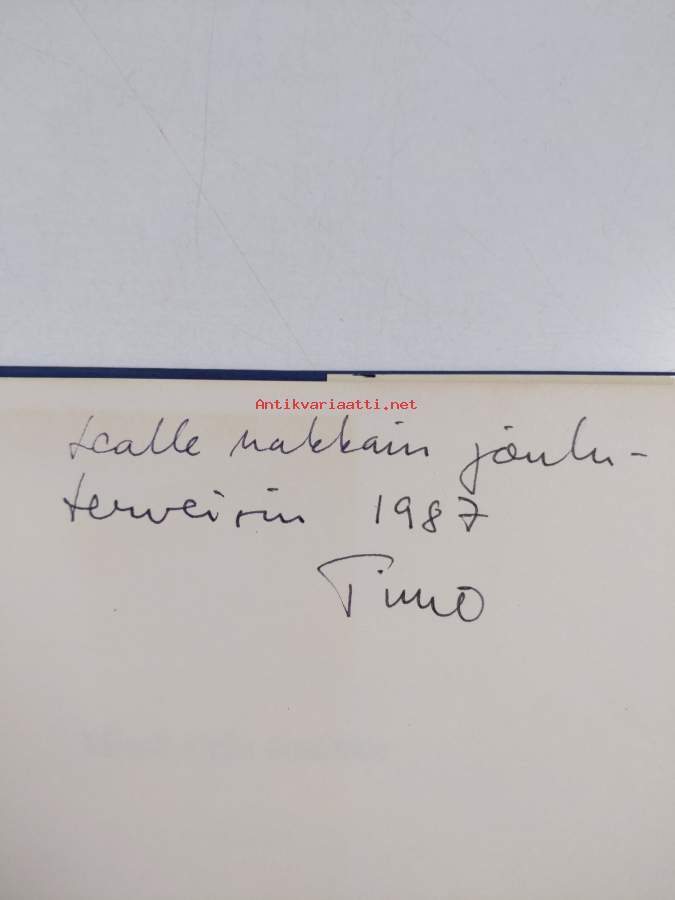 Antikvariaatti.net
Kalle rakkain joulu-
terveisin 1987
Timo